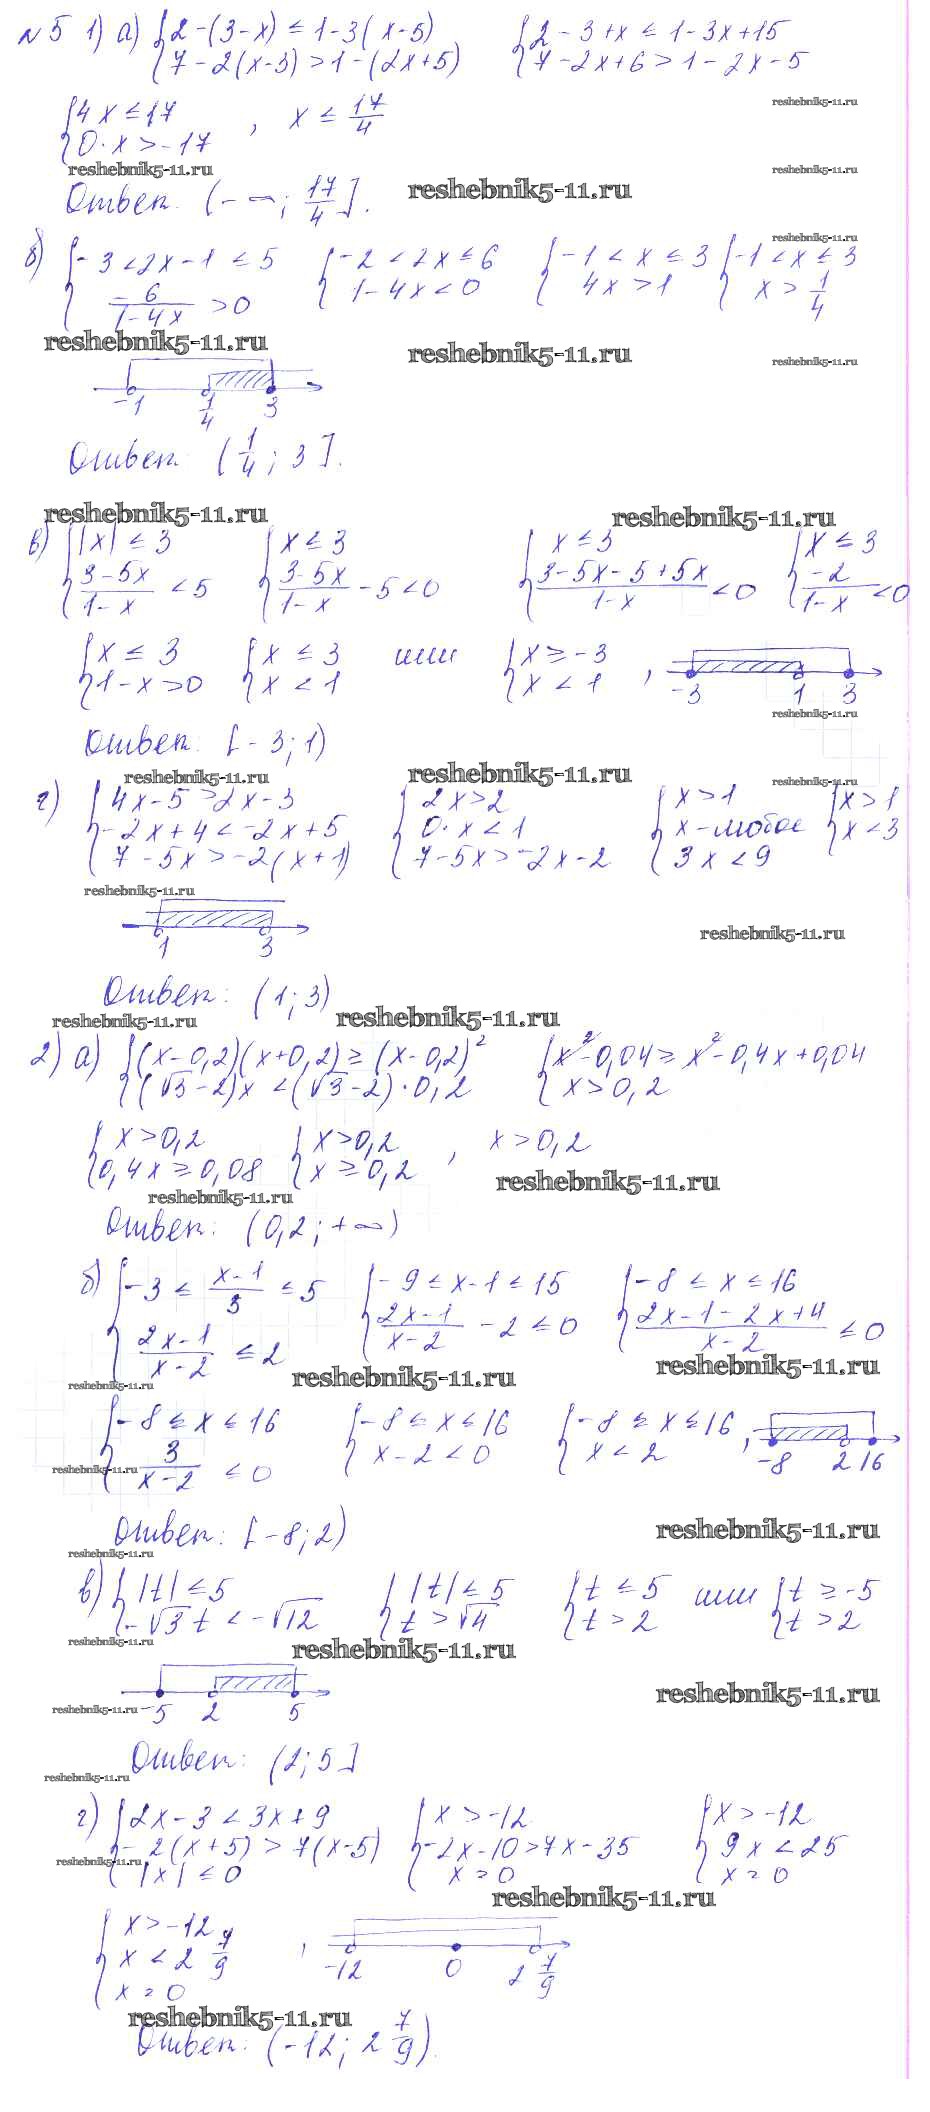 №5 1) а) {2-(3-x) ≤ 1-3(x-5) {2-3+x ≤ 1-3x+15
{7-2(x-3) > 1-(2x+5) {7-2x+6 > 1-2x-5
reshebnik5-11.ru
{4x ≤ 17 , x ≤ 17/4
{0·x > -17
reshebnik5-11.ru reshebnik5-11.ru
Ответ: (-∞; 17/4]. reshebnik5-11.ru
reshebnik5-11.ru
б) {-3 < 2x-1 ≤ 5 {-2 < 2x ≤ 6 {-1 < x ≤ 3 {-1 < x ≤ 3
{-6/(1-4x) > 0 {1-4x < 0 {4x > 1 {x > 1/4
reshebnik5-11.ru reshebnik5-11.ru reshebnik5-11.ru
-1 1/4 3
Ответ: (1/4; 3].
reshebnik5-11.ru reshebnik5-11.ru
в) {|x| ≤ 3 {x ≤ 3 {x ≤ 3 {x ≤ 3
{(3-5x)/(1-x) < 5 {(3-5x)/(1-x) - 5 < 0 {(3-5x-5+5x)/(1-x) < 0 {-2/(1-x) < 0
{x ≤ 3 {x ≤ 3 или {x ≥ -3 ,
{1-x > 0 {x < 1 {x < 1 -3 1 3
reshebnik5-11.ru
Ответ: [-3; 1)
reshebnik5-11.ru reshebnik5-11.ru reshebnik5-11.ru
г) {4x-5 > 2x-3 {2x > 2 {x > 1 {x > 1
{-2x+4 < -2x+5 {0·x < 1 {x-любое {x < 3
{7-5x > -2(x+1) {7-5x > -2x-2 {3x < 9
reshebnik5-11.ru
1 3 reshebnik5-11.ru
Ответ: (1; 3)
reshebnik5-11.ru reshebnik5-11.ru
2) а) {(x-0,2)(x+0,2) ≥ (x-0,2)² {x²-0,04 ≥ x²-0,4x+0,04
{(√3-2)x < (√3-2)·0,2 {x > 0,2
{x > 0,2 {x > 0,2 , x > 0,2
{0,4x ≥ 0,08 {x ≥ 0,2
reshebnik5-11.ru reshebnik5-11.ru
Ответ: (0,2; +∞)
б) {-3 ≤ (x-1)/3 ≤ 5 {-9 ≤ x-1 ≤ 15 {-8 ≤ x ≤ 16
{(2x-1)/(x-2) ≤ 2 {(2x-1)/(x-2) - 2 ≤ 0 {(2x-1-2x+4)/(x-2) ≤ 0
reshebnik5-11.ru reshebnik5-11.ru reshebnik5-11.ru
{-8 ≤ x ≤ 16 {-8 ≤ x ≤ 16 {-8 ≤ x ≤ 16 ,
{3/(x-2) ≤ 0 {x-2 < 0 {x < 2 -8 2 16
reshebnik5-11.ru
Ответ: [-8; 2) reshebnik5-11.ru
reshebnik5-11.ru
в) {|t| ≤ 5 {|t| ≤ 5 {t ≤ 5 или {t ≥ -5
{-√3t < -√12 {t > √4 {t > 2 {t > 2
reshebnik5-11.ru reshebnik5-11.ru
reshebnik5-11.ru -5 2 5 reshebnik5-11.ru
Ответ: (2; 5]
reshebnik5-11.ru
г) {2x-3 < 3x+9 {x > -12 {x > -12
{-2(x+5) > 7(x-5) {-2x-10 > 7x-35 {9x < 25
{|x| ≤ 0 {x = 0 {x = 0
reshebnik5-11.ru reshebnik5-11.ru
{x > -12 ,
{x < 2 7/9 -12 0 2 7/9
{x = 0
reshebnik5-11.ru
Ответ: (-12; 2 7/9).